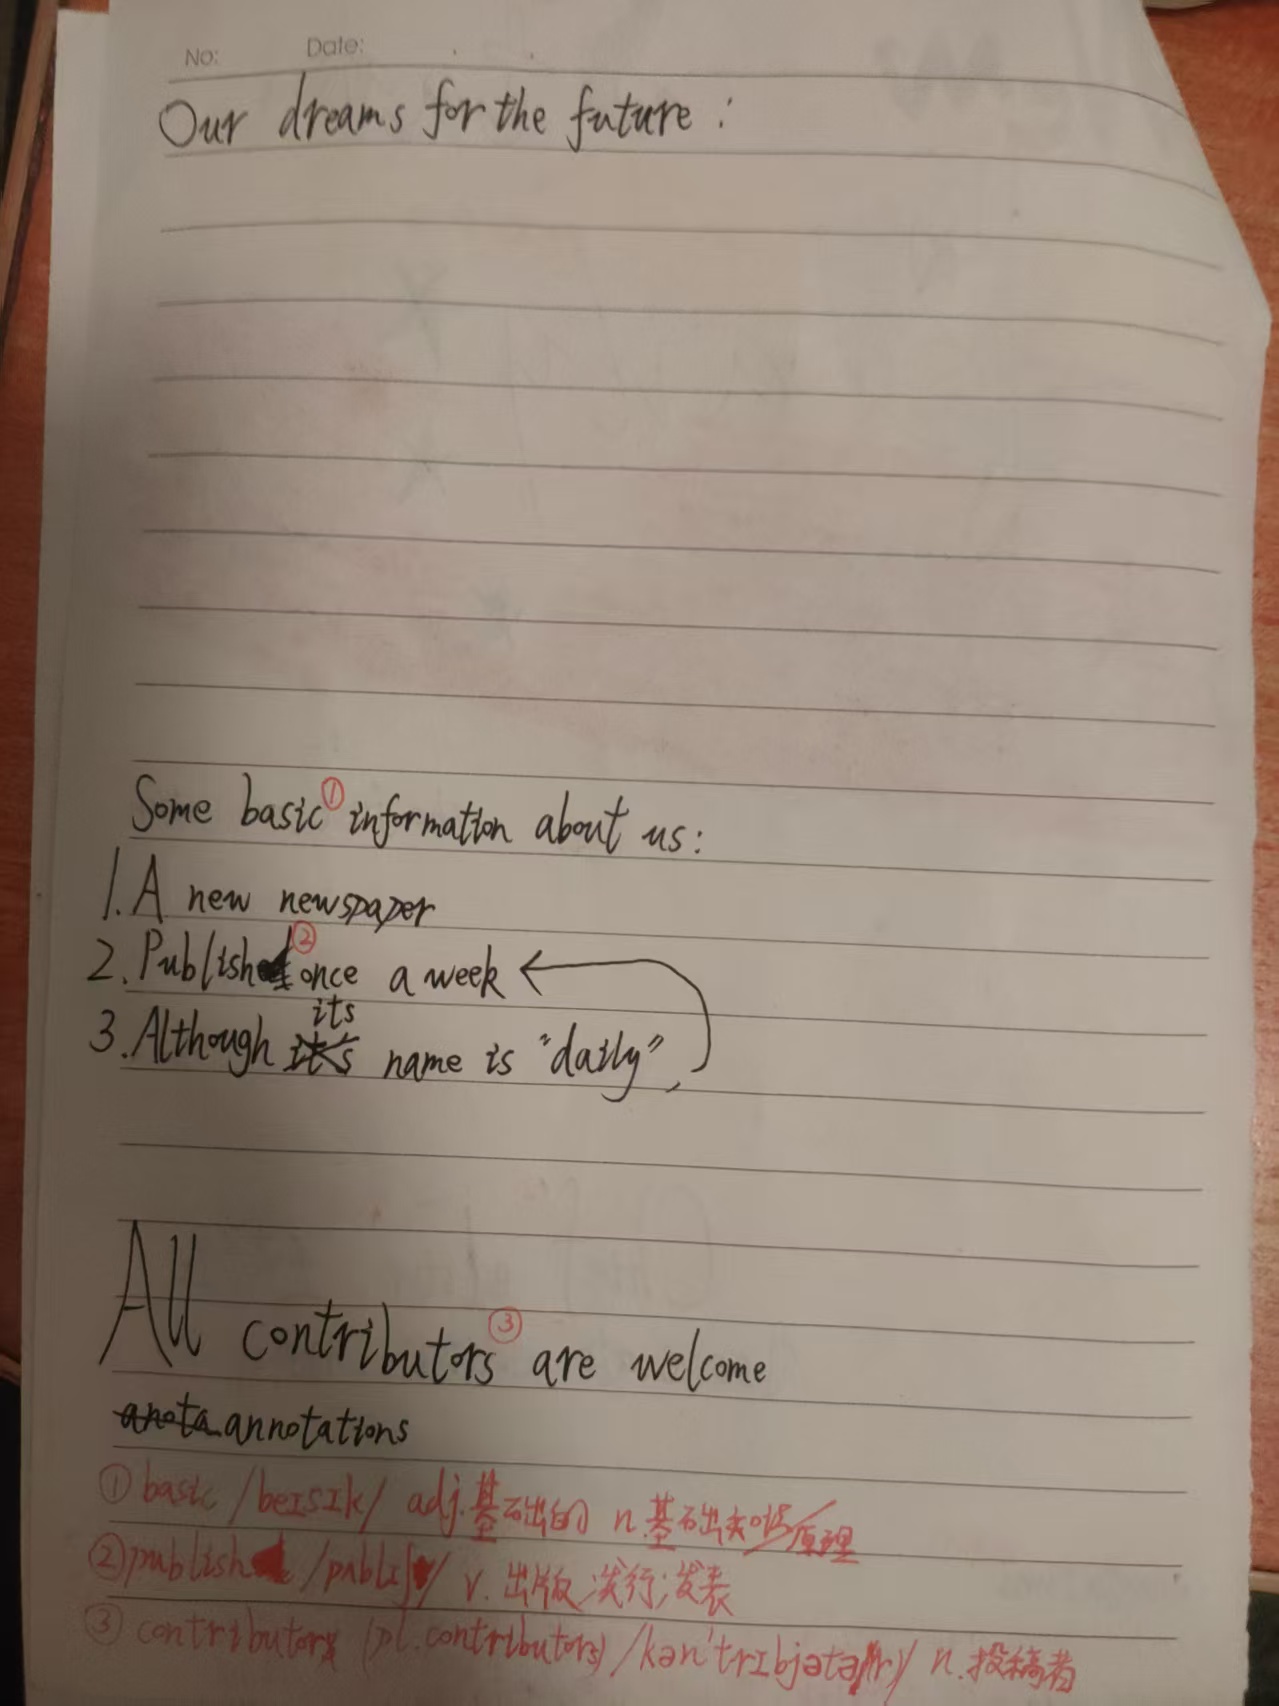 No: Date:
Our dreams for the future:
Some basic① information about us:
1. A new newspaper
2. Publish② once a week
its
3. Although it's name is "daily",
All contributors③ are welcome
anota annotations
① basic /beɪsɪk/ adj.基础的 n.基础知识/原理
② publish /pʌblɪʃ/ v. 出版;发行;发表
③ contributor (pl.contributors) /kən'trɪbjətə(r)/ n.投稿者